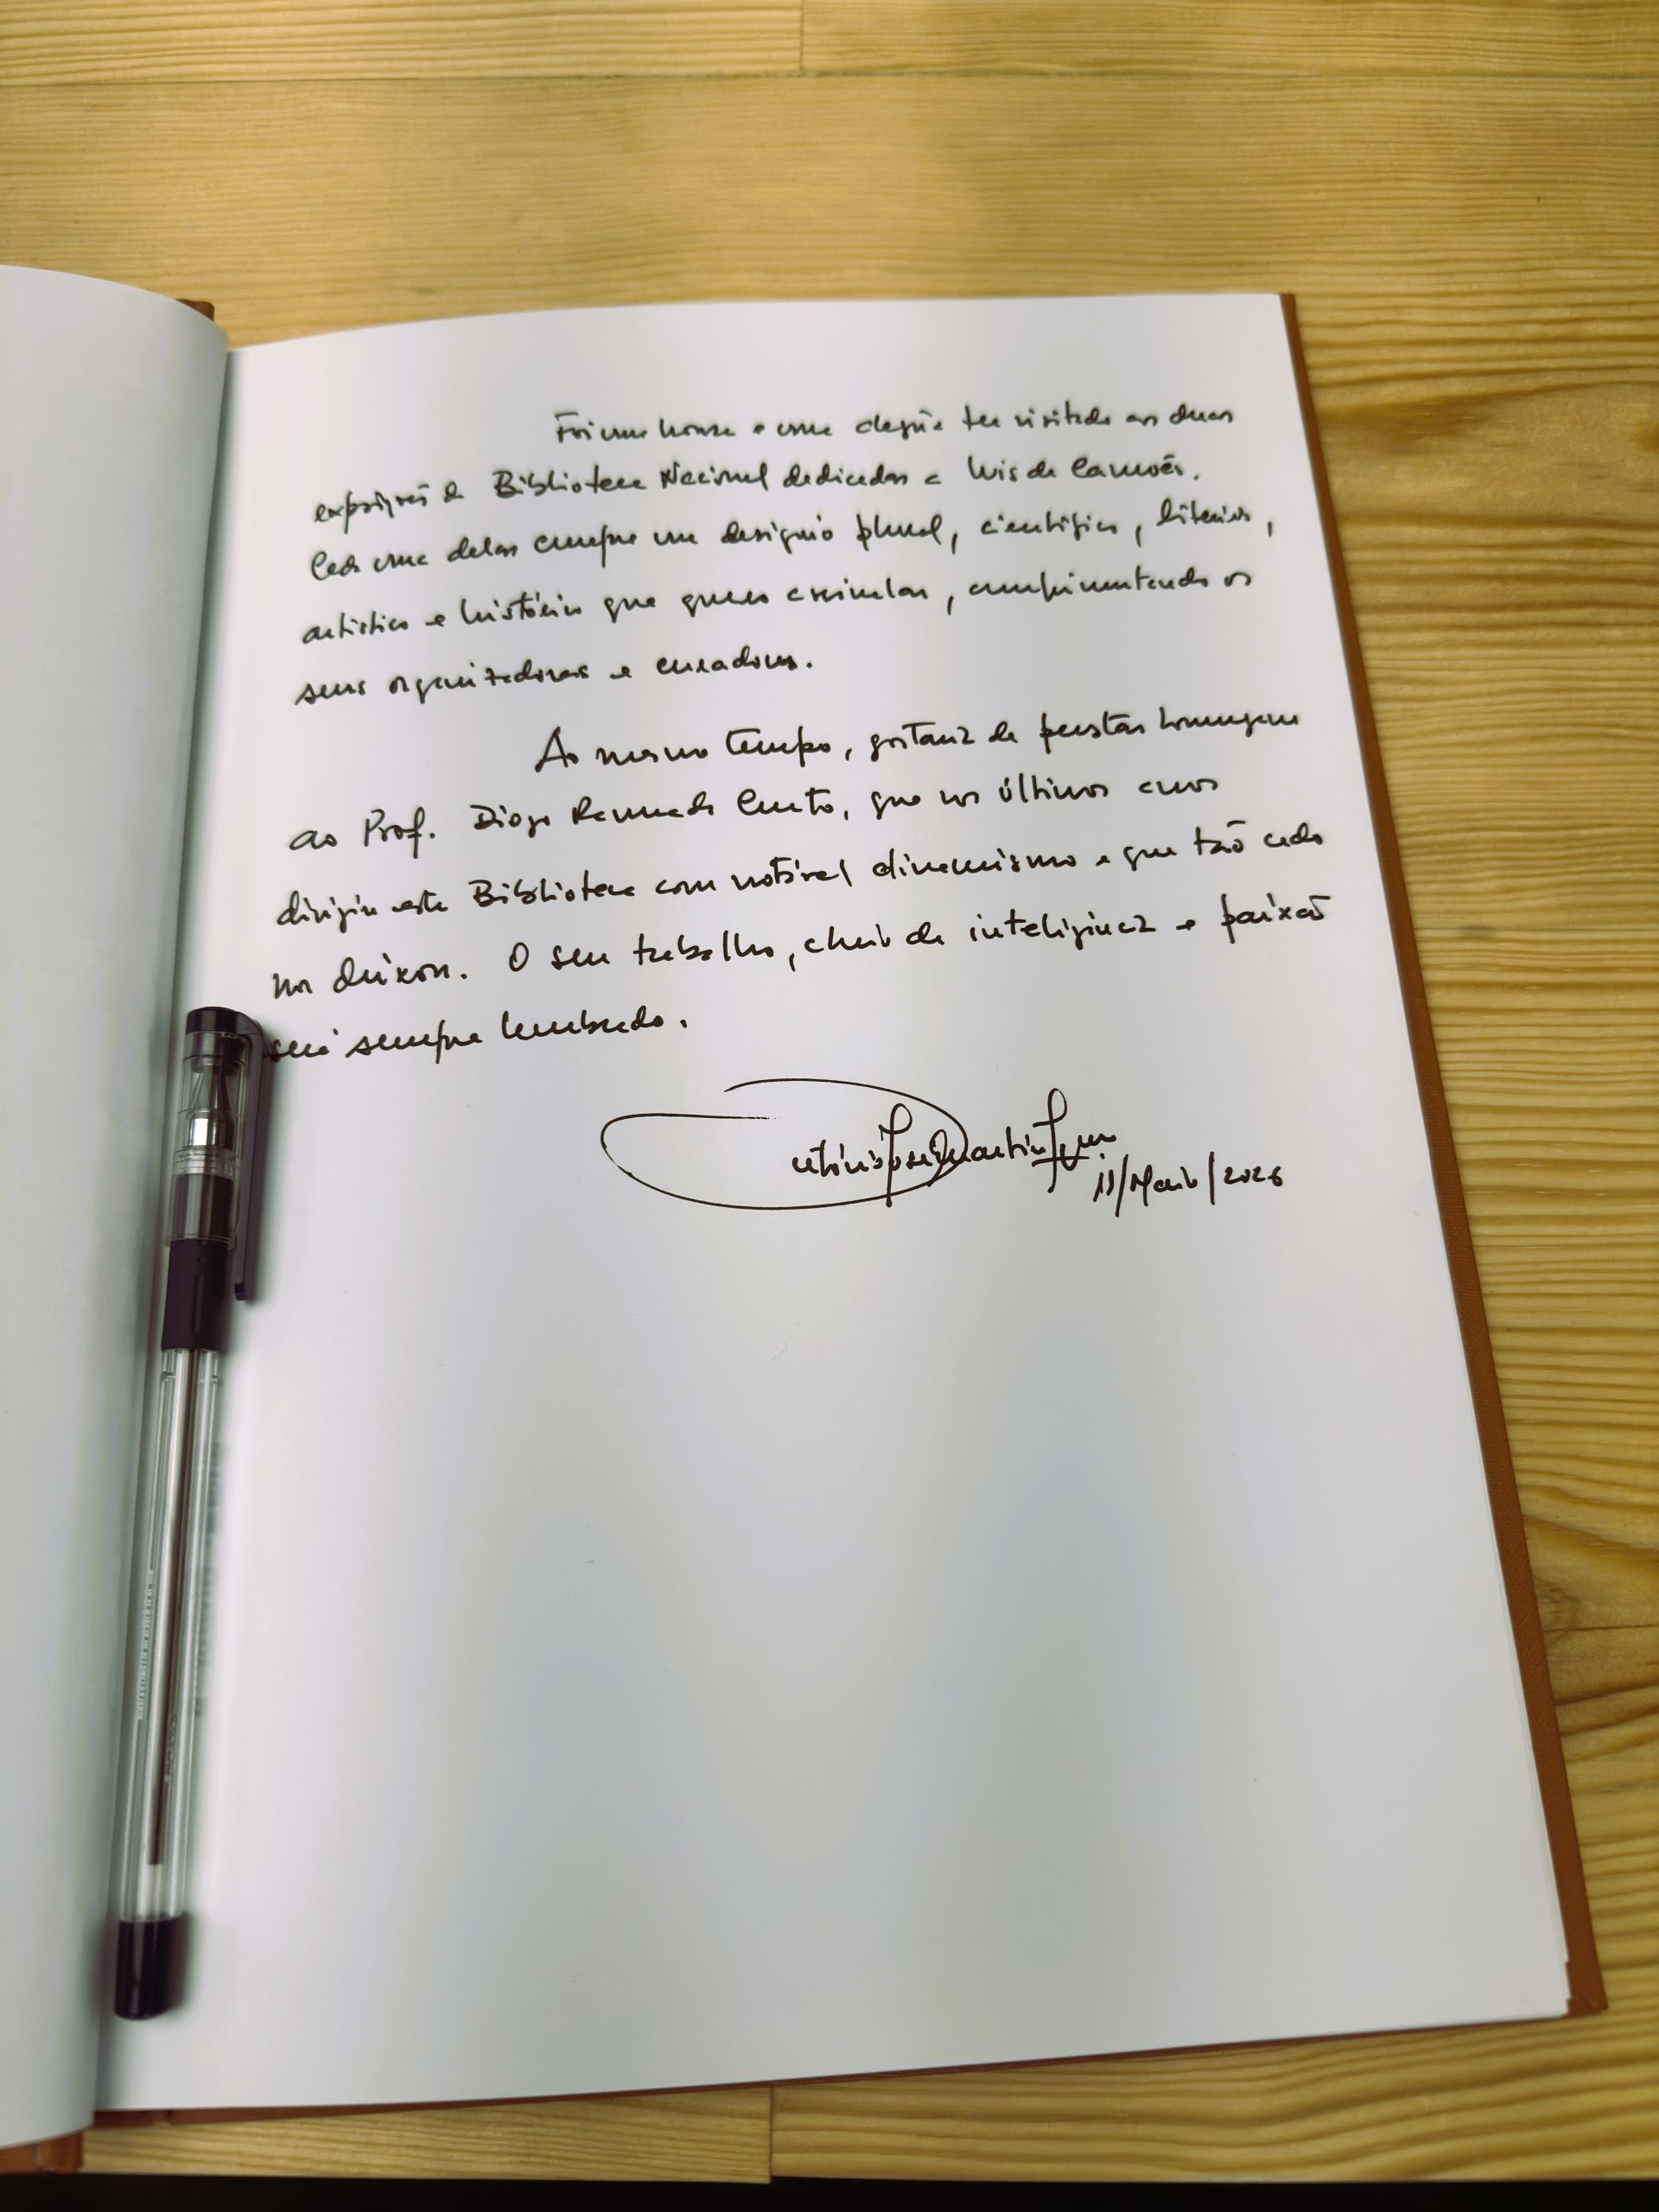 Foi uma honra e uma alegria ter visitado as duas
exposições da Biblioteca Nacional dedicadas a Luís de Camões.
Cada uma delas cumpre um desígnio plural, científico, literário,
artístico e histórico que quero assinalar, cumprimentando os
seus organizadores e curadores.
Ao mesmo tempo, gostaria de prestar homenagem
ao Prof. Diogo Ramada Curto, que nos últimos anos
dirigiu esta Biblioteca com notável dinamismo e que tão cedo
nos deixou. O seu trabalho, cheio de inteligência e paixão
será sempre lembrado.
António José Martins Seguro
11/Maio/2026